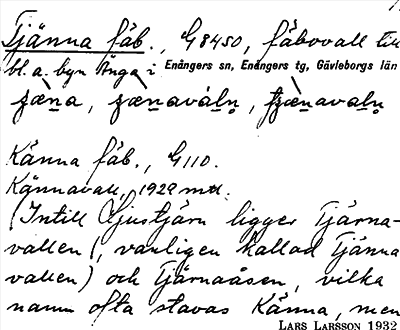 Tjänna fäb., G8450, fäbovall till
bl. a. byn Änga i Enångers sn, Enångers tg, Gävleborgs län
Känna fäb., G110.
Kännavall, 1929 mtl.
(Intill Ljustjärn ligger Tjärna-
vallen (, vanligen kallad Tjänna
vallen) och Tjärnaåsen, vilka
namn ofta stavas Känna, men
LARS LARSSON 1932